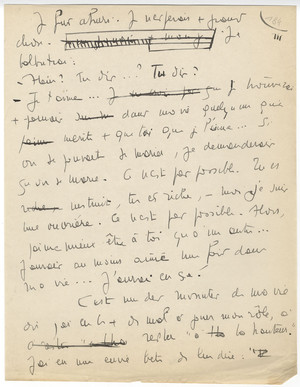 Je fus ahuri. Je n'espérais + grand
III
chose. Je
balbutiai :
- Hein ? Tu dis ...? Tu dis ?
- Je t'aime ... Je
+ jamais dans ma vie quelqu'un qui
mérite + que toi que je l'aime ... Si
on se pouvait se marier, je demanderais
qu'on se marie. Ce n'est pas possible. Tu es
instruit, tu es riche, - moi je suis
une ouvrière. Ce n'est pas possible. Alors,
j'aime mieux être à toi qu'à un autre ...
J'aurais au moins aimé une fois dans
ma vie ... J'aurai eu ça !
C'est un des moments de ma vie
où j'ai eu le + de mal à jouer mon rôle, à
rester "à la hauteur."
J'ai eu une envie bête de lui dire : "